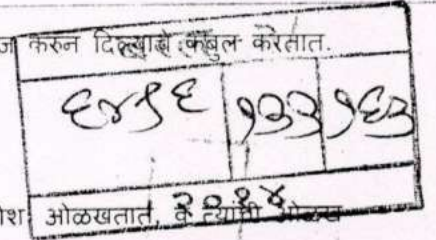 ज करुन दिल्याचे कबुल करतात.
६४९६ १३३ १६३
२०१४
ओळखतात, व त्यांची ओळख